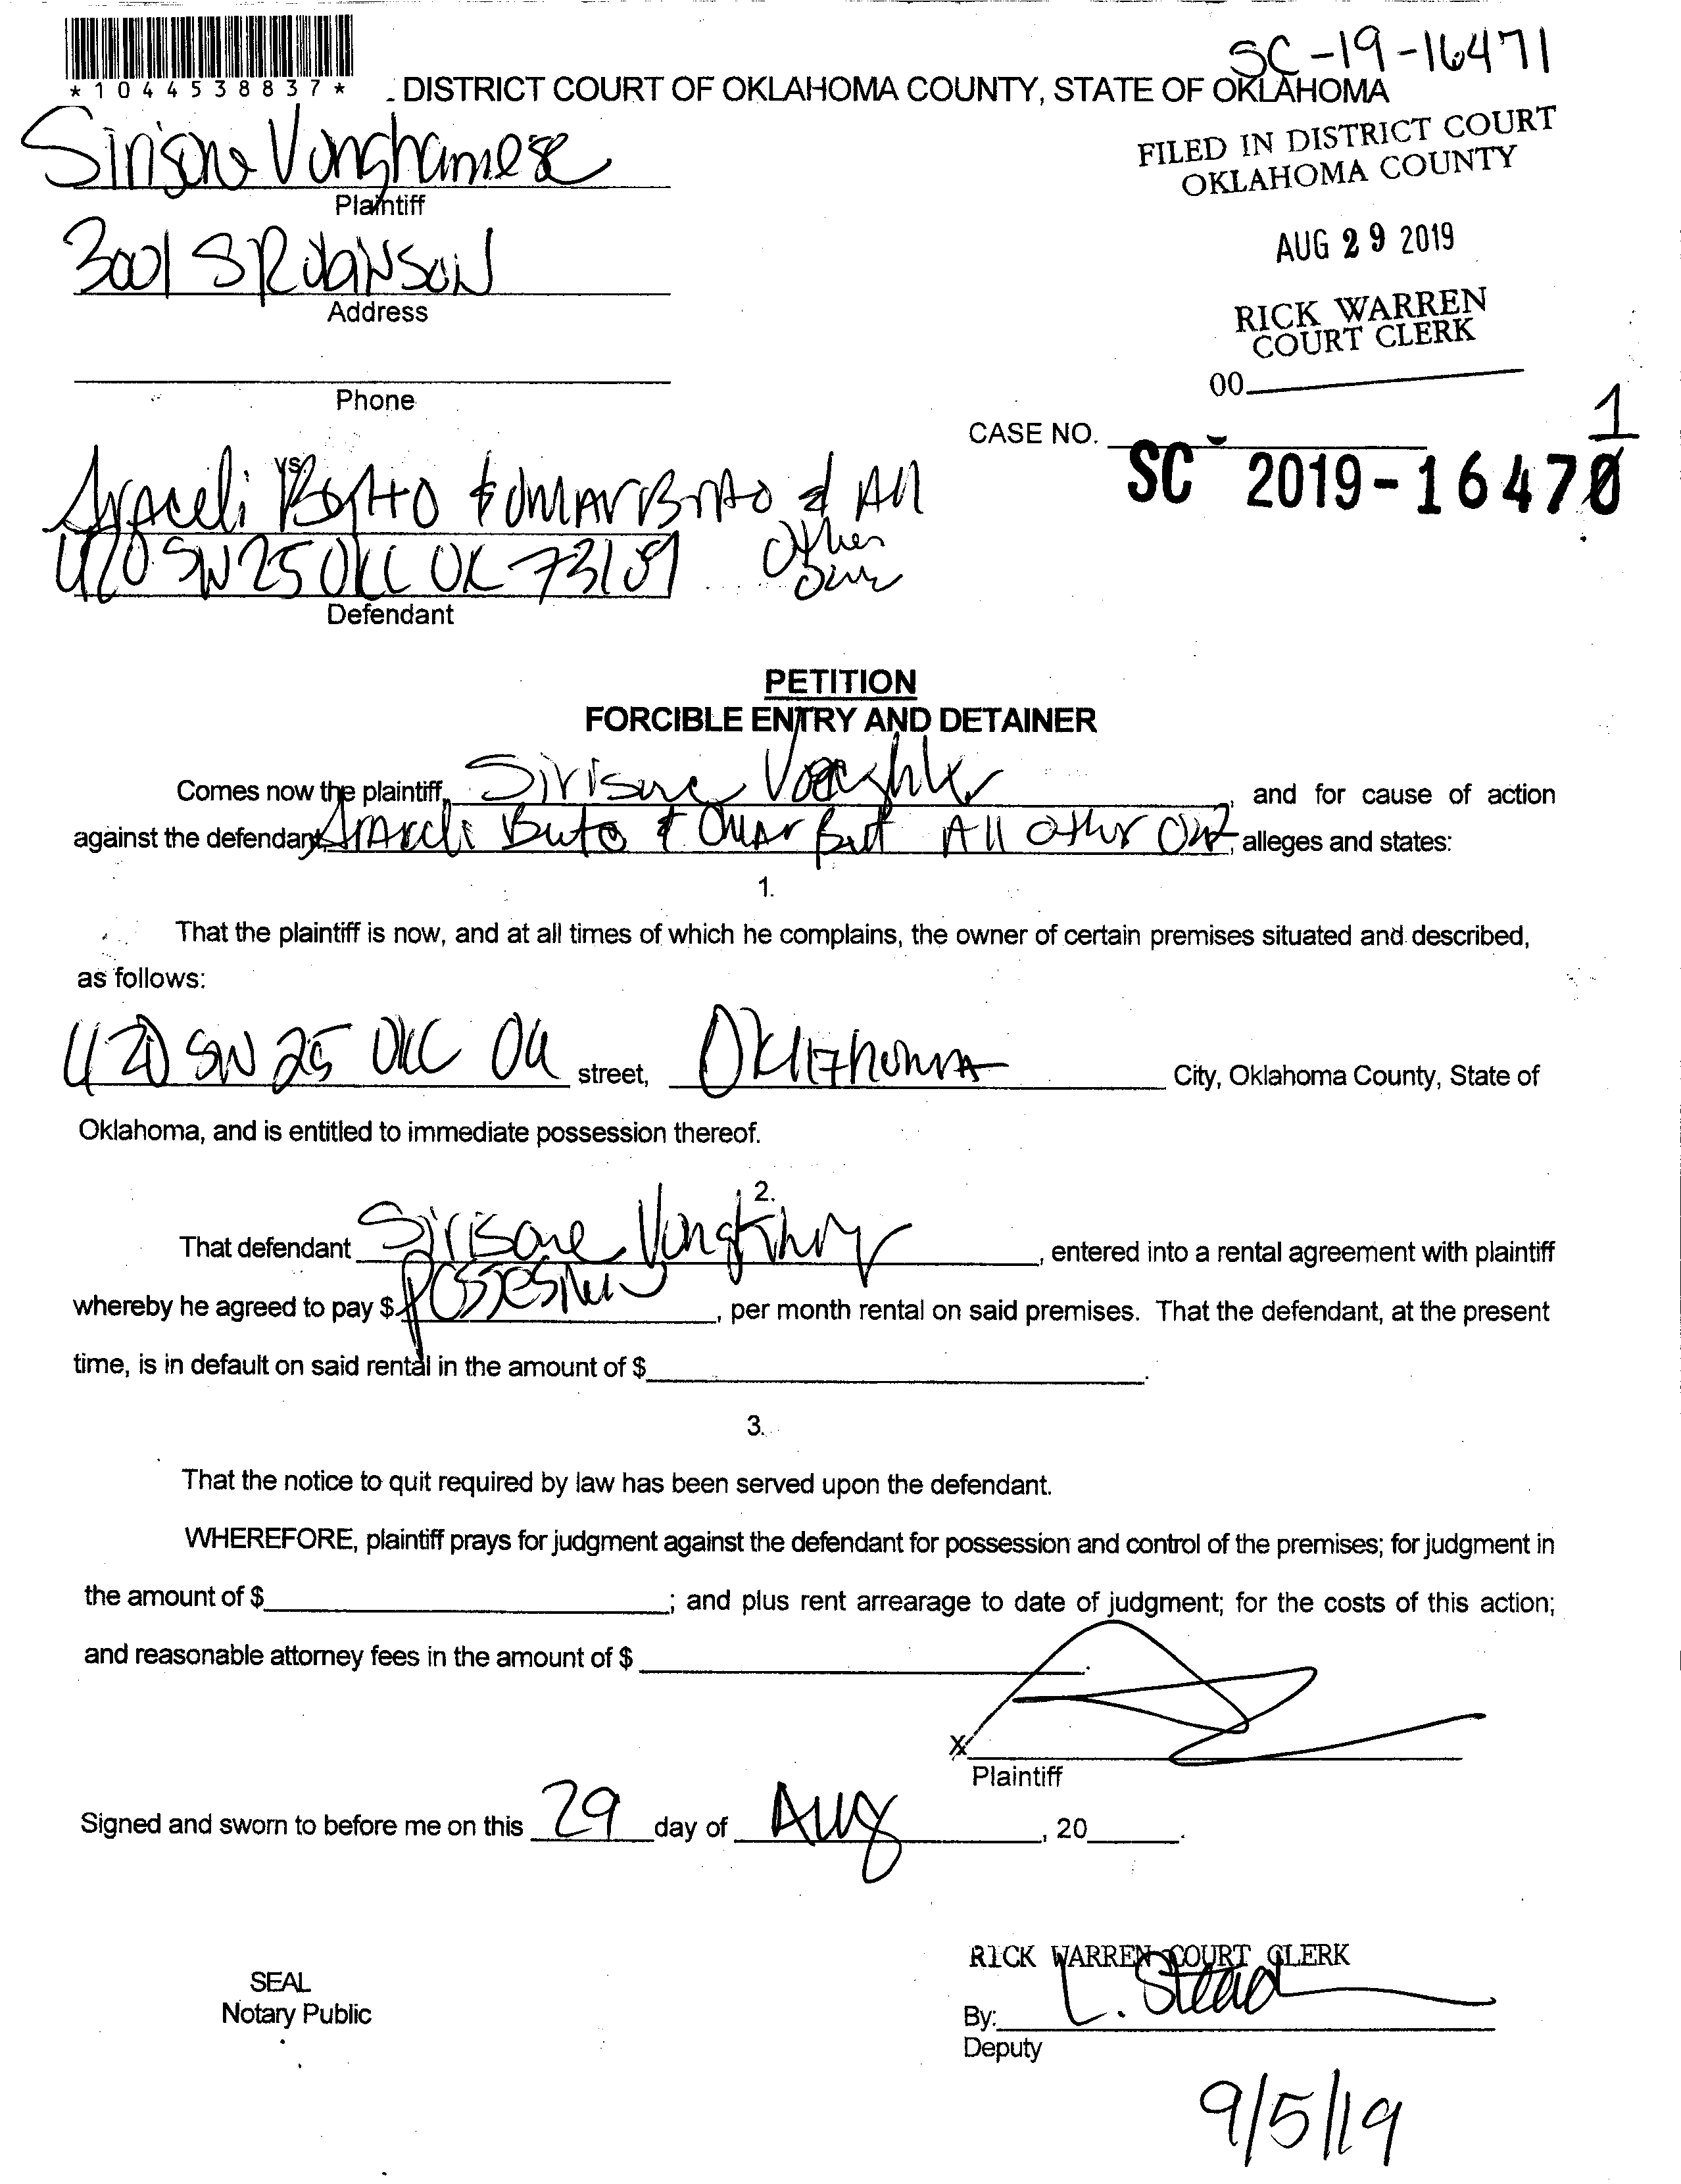 SC-19-16471
*1044538837*
DISTRICT COURT OF OKLAHOMA COUNTY, STATE OF OKLAHOMA
FILED IN DISTRICT COURT
OKLAHOMA COUNTY
Plaintiff
AUG 29 2019
3001 S Robinson
Address
RICK WARREN
COURT CLERK
00
Phone
CASE NO.
1
SC - 2019-16470
vs.
Araceli & Omar & All
Other
420 SW 25 OKC OK 73109
Defendant
PETITION
FORCIBLE ENTRY AND DETAINER
Comes now the plaintiff, Sirisone and for cause of action
against the defendant Araceli & Omar All Other alleges and states:
1.
That the plaintiff is now, and at all times of which he complains, the owner of certain premises situated and described,
as follows:
420 SW 25 OKC OK street, Oklahoma City, Oklahoma County, State of
Oklahoma, and is entitled to immediate possession thereof.
2.
That defendant Sirisone , entered into a rental agreement with plaintiff
whereby he agreed to pay $ , per month rental on said premises. That the defendant, at the present
time, is in default on said rental in the amount of $ .
3.
That the notice to quit required by law has been served upon the defendant.
WHEREFORE, plaintiff prays for judgment against the defendant for possession and control of the premises; for judgment in
the amount of $ ; and plus rent arrearage to date of judgment; for the costs of this action;
and reasonable attorney fees in the amount of $ .
X
Plaintiff
Signed and sworn to before me on this 29 day of Aug , 20 .
RICK WARREN COURT CLERK
SEAL
Notary Public
By: L. Stead
Deputy
9/5/19